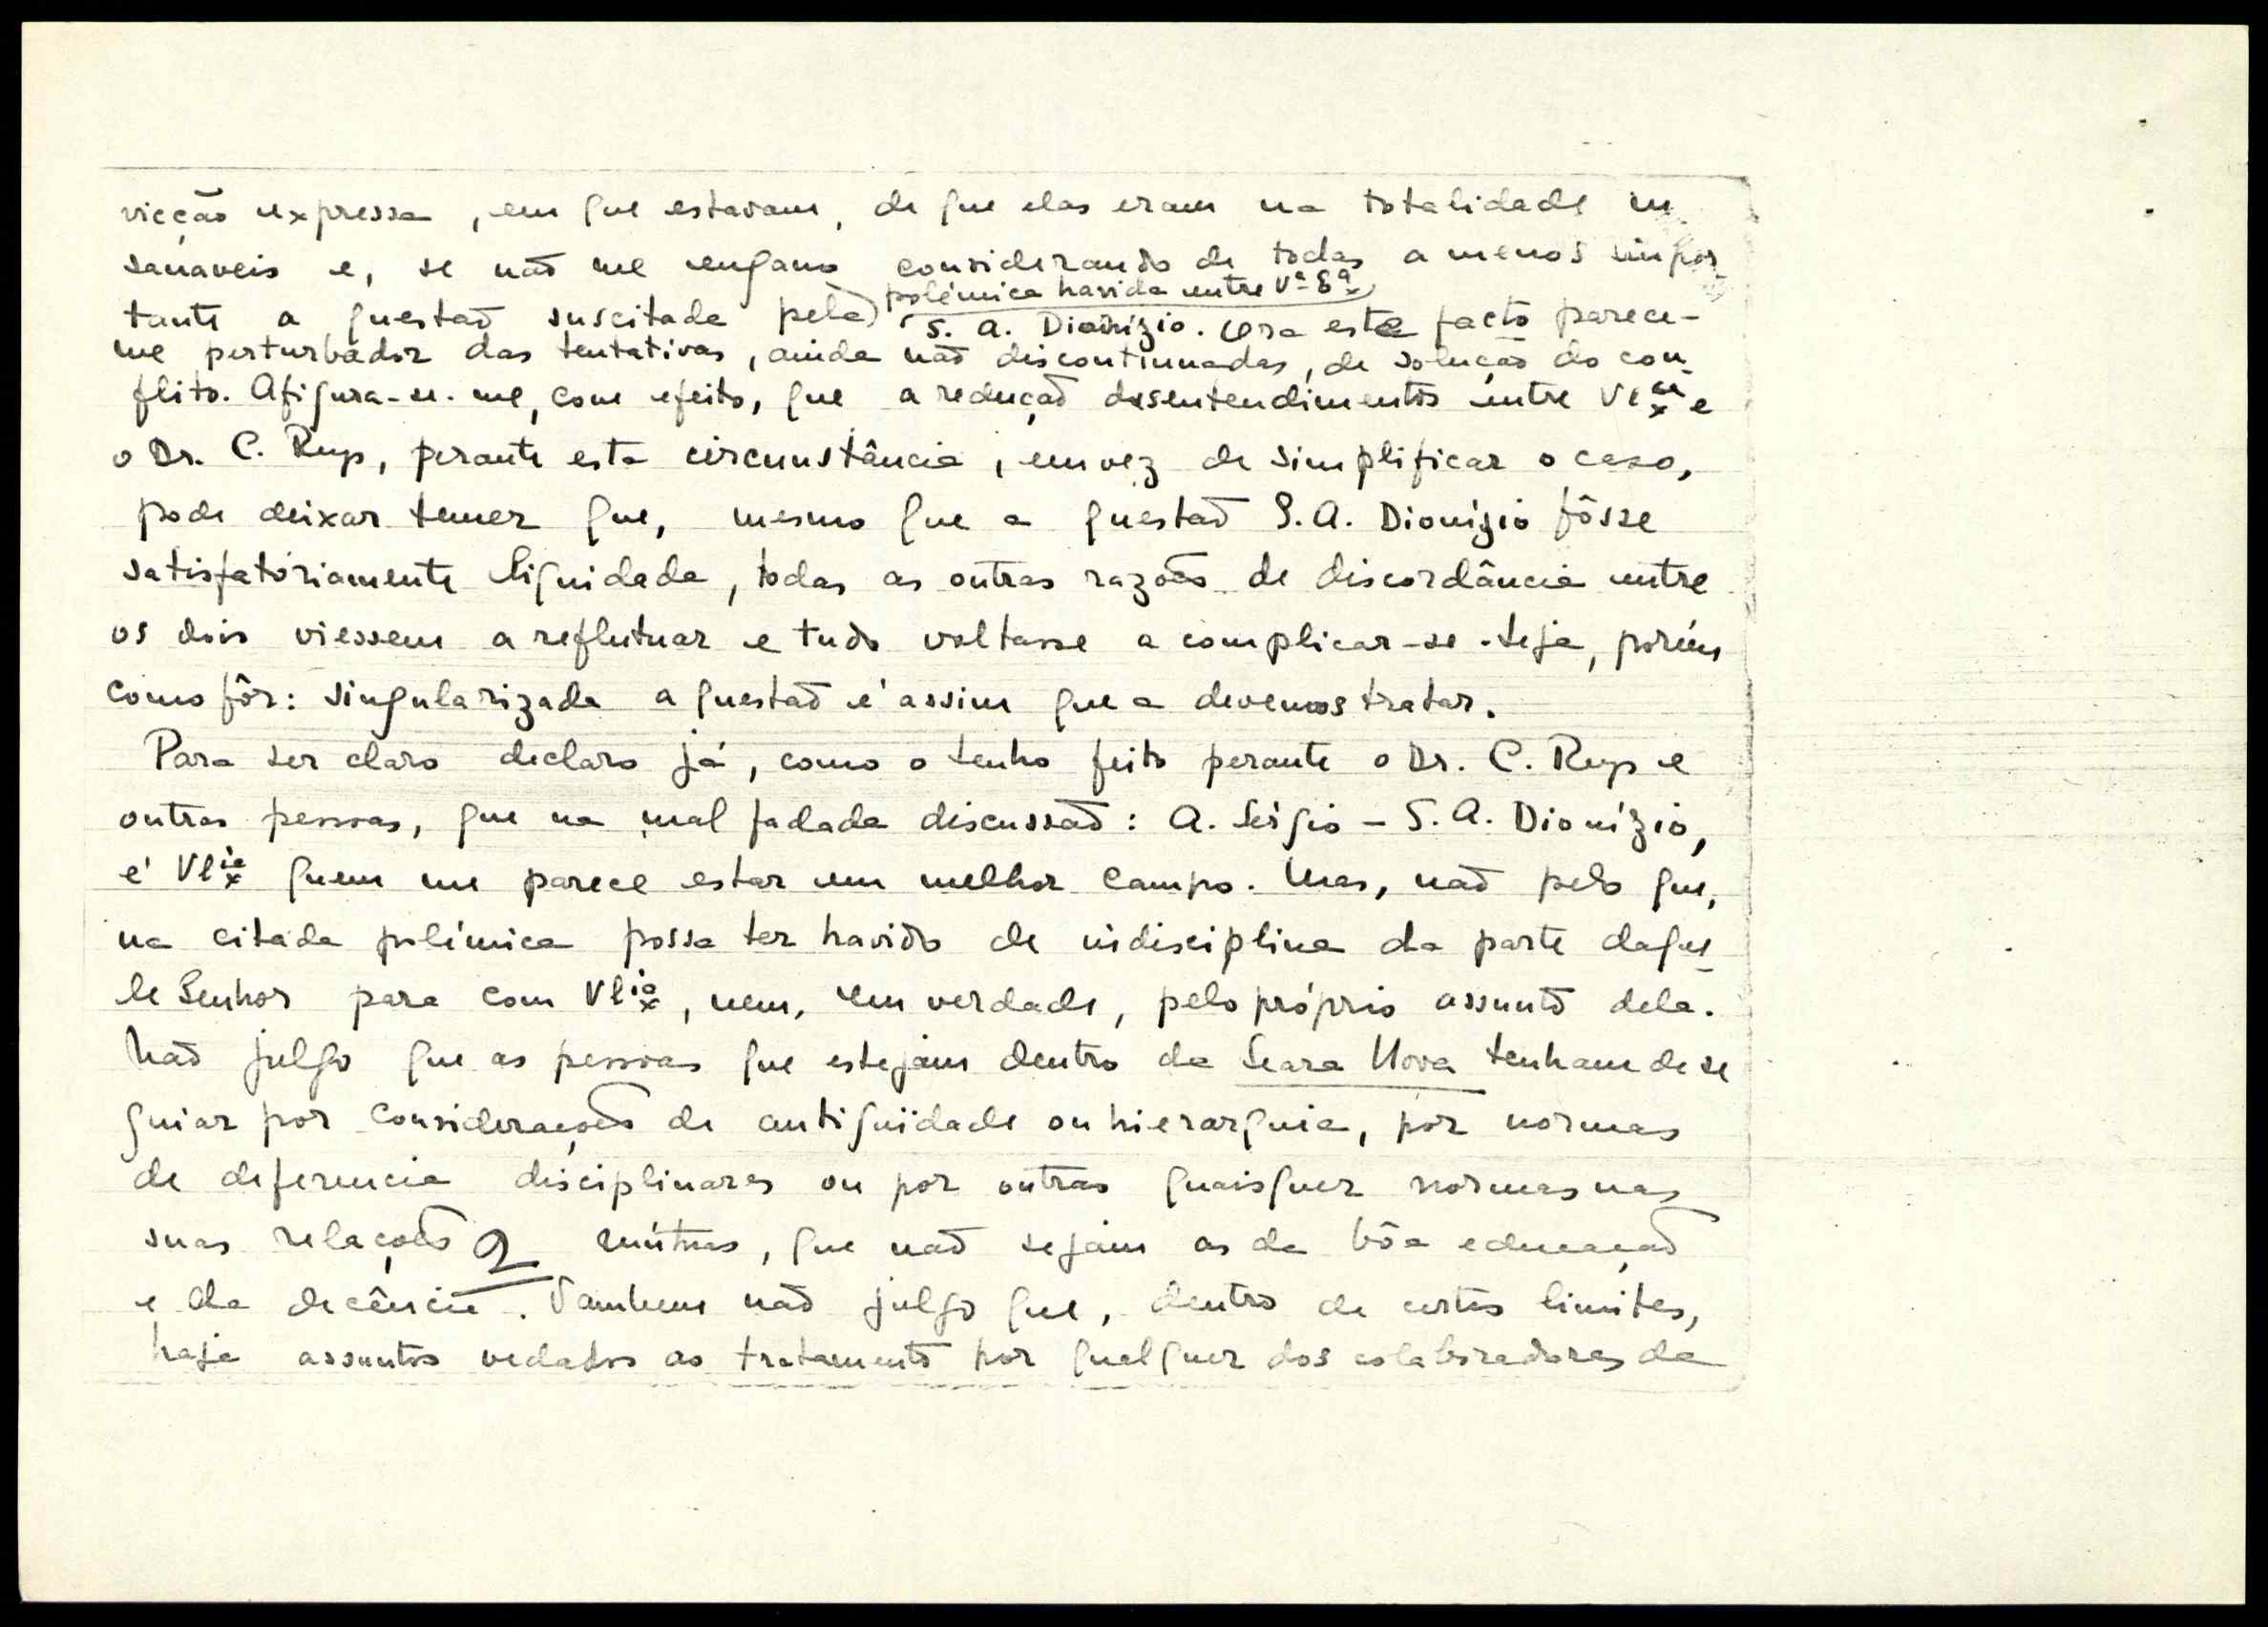 vicção expressa, em que estavam, de que elas eram na totalidade in
sanaveis e, se não me engano considerando de todas a menos impor-
polémica havida entre Vª Exª
tante a questão suscitada pela S. A. Dionízio. Ora este facto parece-
me perturbador das tentativas, ainda não discontinuadas, de solução do con-
flito. Afigura-se-me, com efeito, que a redução desentendimentos entre V Exª e
o Dr. C. Reys, perante esta circunstância, em vez de simplificar o caso,
pode deixar temer que, mesmo que a questão S. A. Dionízio fôsse
satisfatóriamente liquidada, todas as outras razões de discordância entre
os dois viessem a reflutuar e tudo voltasse a complicar-se. Seja, porém
como fôr: singularizada a questão é assim que a devemos tratar.
Para ser claro declaro já, como o tenho feito perante o Dr. C. Reys e
outras pessoas, que na mal fadada discussão: A. Sérgio - S. A. Dionízio,
é V Exciª quem me parece estar em melhor campo. Mas, não pelo que,
na citada polémica possa ter havido de indisciplina da parte daque-
le Senhor para com V Exciª, nem, em verdade, pelo próprio assunto dela.
Não julgo que as pessoas que estejam dentro da Seara Nova tenham de se
guiar por considerações de antigüidade ou hierarquia, por normas
de deferencia disciplinares ou por outras quaisquer normas nas
suas relações 2 mútuas, que não sejam as da bôa educação
e da decência. Tambem não julgo que, dentro de certos limites,
haja assuntos vedados ao tratamento por qualquer dos colaboradores da